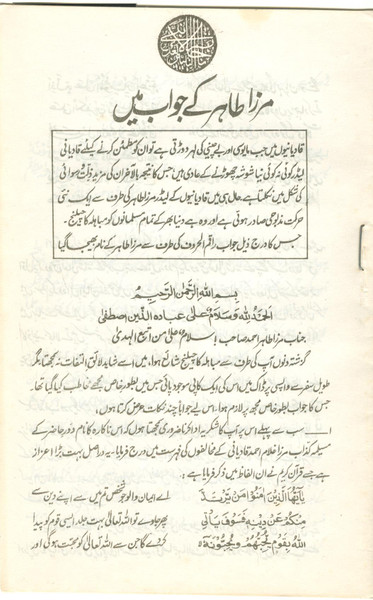 مرزا طاہر کے جواب میں
قادیانیوں میں جب مایوسی اور بے چینی کی لہر دوڑتی ہے تو ان کو مطمئن کرنے کیلئے قادیانی
لیڈر کوئی نہ کوئی نیا شوشہ چھوڑنے کے عادی ہیں جس کا نتیجہ بالآخر ان کی مزید ذلت و رسوائی
کی شکل میں نکلتا ہے حال ہی میں قادیانیوں کے لیڈر مرزا طاہر کی طرف سے ایک نئی
حرکت مذبوحی صادر ہوئی ہے اور وہ ہے دنیا بھر کے تمام مسلمانوں کو مباہلہ کا چیلنج۔
جس کا درج ذیل جواب راقم الحروف کی طرف سے مرزا طاہر کے نام بھیجا گیا
بسم اللہ الرحمٰن الرحیم
الحمد للہ وسلام علی عبادہ الذین اصطفی
جناب مرزا طاہر احمد صاحب! سلام علی من اتبع الہدی
گزشتہ دنوں آپ کی طرف سے مباہلہ کا چیلنج شائع ہوا، میں اسے شاید لائق التفات نہ سمجھتا مگر
طویل سفر سے واپسی پر ڈاک میں اس کی ایک کاپی موجود پائی جس میں بطور خاص مجھے مخاطب کیا گیا تھا۔
جس کا جواب بطور خاص مجھ پر لازم ہوا، اس لئے جواباً چند نکات عرض کرتا ہوں،
۱۔ سب سے پہلے اس پر آپ کا شکریہ ادا کرنا ضروری سمجھتا ہوں کہ اس ناکارہ کا نام دور حاضر کے
مسیلمہ کذاب مرزا غلام احمد قادیانی کے مخالفوں کی فہرست میں درج فرمایا۔ یہ دراصل بہت بڑا اعزاز
ہے جسے قرآن کریم نے ان الفاظ میں ذکر فرمایا ہے:
یٰٓاَیُّهَا الَّذِیْنَ اٰمَنُوْا مَنْ یَّرْتَدَّ
مِنْكُمْ عَنْ دِیْنِهٖ فَسَوْفَ یَاْتِی
اللّٰهُ بِقَوْمٍ یُّحِبُّهُمْ وَ یُحِبُّوْنَهٗٓ
اے ایمان والو جو شخص تم میں سے اپنے دین سے
پھر جاوے تو اللہ تعالیٰ بہت جلد ایسی قوم کو پیدا
کر دے گا جن سے اللہ تعالیٰ کو محبت ہو گی اور